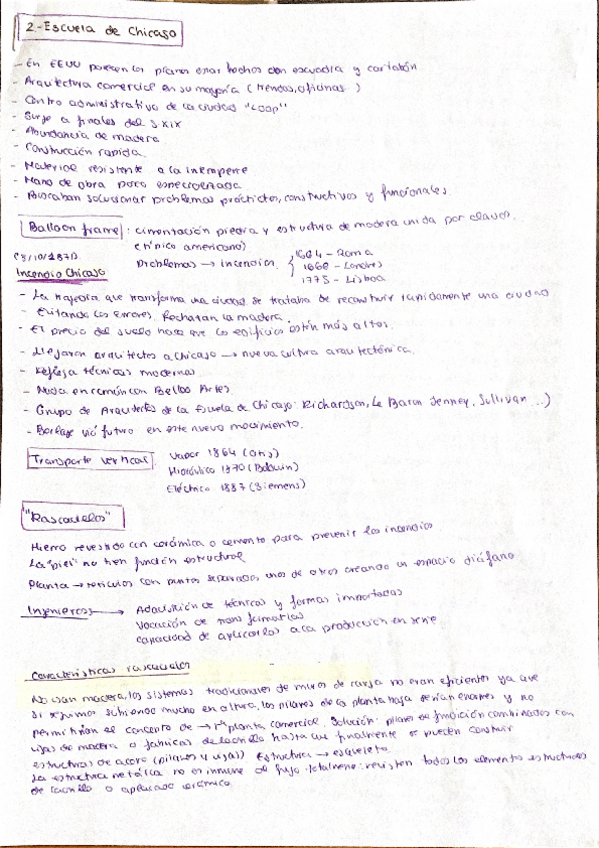 2-Escuela de Chicago
- En EEUU parecen los planos estar hechos con escuadra y cartabón
- Arquitectura comercial en su mayoría (tiendas, oficinas)
- Centro administrativo de la ciudad "Loop"
- Surge a finales del S.XIX
- Abundancia de madera
- Construcción rapida.
- Material resistente a la intemperie
- Mano de obra poco especializada
- Buscaban solucionar problemas prácticos, constructivos y funcionales.
Balloon frame : cimentación piedra y estructura de madera unida por clavos.
(típico americano)
Problemas → incendios. { 1664 - Roma
1666 - Londres
1775 - Lisboa
(8/10/1871)
Incendio Chicago
- La tragedia que transforma una ciudad. Se trataba de reconstruir rapidamente una ciudad
- Evitando los errores. Rechazan la madera.
- El precio del suelo hace que los edificios estén más altos.
- Llegaron arquitectos a Chicago → nueva cultura arquitectónica.
- Refleja técnicas modernas
- Nada en común con Bellas Artes
- Grupo de Arquitectos de la Escuela de Chicago: Richardson, Le Baron Jenney, Sullivan ...)
- Berlage vió futuro en este nuevo movimiento.
Transporte vertical Vapor 1864 (Otis)
Hidráulico 1870 (Baldwin)
Eléctrico 1887 (Siemens)
"Rascacielos"
Hierro revestido con cerámica o cemento para prevenir los incendios
La "piel" no tien función estructural
Planta → retículas con puntos separados unos de otros creando un espacio diáfano
Ingenieros → Adquisición de técnicas y formas importadas
Vocación de transformarlas
Capacidad de aplicarlos a la producción en serie
Características rascacielos
No usan madera, los sistemas tradicionales de muros de carga no eran eficientes ya que
si seguimos subiendo mucho en altura, los pilares de la planta baja serían enormes y no
permitirían el concepto de → 1ª planta comercial. Solución: pilares de fundición combinados con
vigas de madera o fabricas de ladrillo hasta que finalmente se pueden construir
estructuras de acero (pilares y vigas) Estructura → esqueleto
La estructura metálica no es inmune al fuego totalmene: revisten todos los elementos estructurales
de ladrillo o aplacado cerámico.